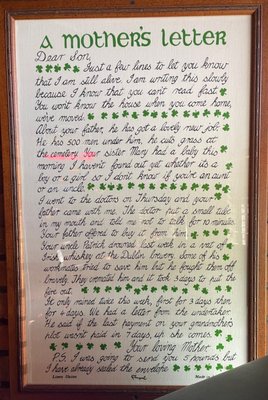 A MOTHER'S LETTER
Dear Son,
Just a few lines to let you know
that I am still alive. I am writing this slowly
because I know that you can't read fast.
You wont know the house when you come home,
we've moved.
About your father, he has got a lovely new job.
He has 500 men under him, he cuts grass at
the cemetery. Your sister Mary had a baby this
morning I havent found out yet whether its a
boy or a girl so I dont know if you're an aunt
or an uncle.
I went to the doctors on Thursday and your
father came with me. The doctor put a small tube
in my mouth and told me not to talk for 10 minutes.
Your father offered to buy it from him
Your uncle Patrick drowned last week in a vat of
Irish whiskey at the Dublin Brewery. Some of his
workmates tried to save him but he fought them off
bravely. They cremated him and it took 3 days to put the
fire out
It only rained twice this week, first for 3 days then
for 4 days. We had a letter from the undertaker.
He said if the last payment on your grandmother's
plot wasn't paid in 7 days, up she comes.
Your loving Mother.
P.S. I was going to send you 5 pounds but
I have already sealed the envelope